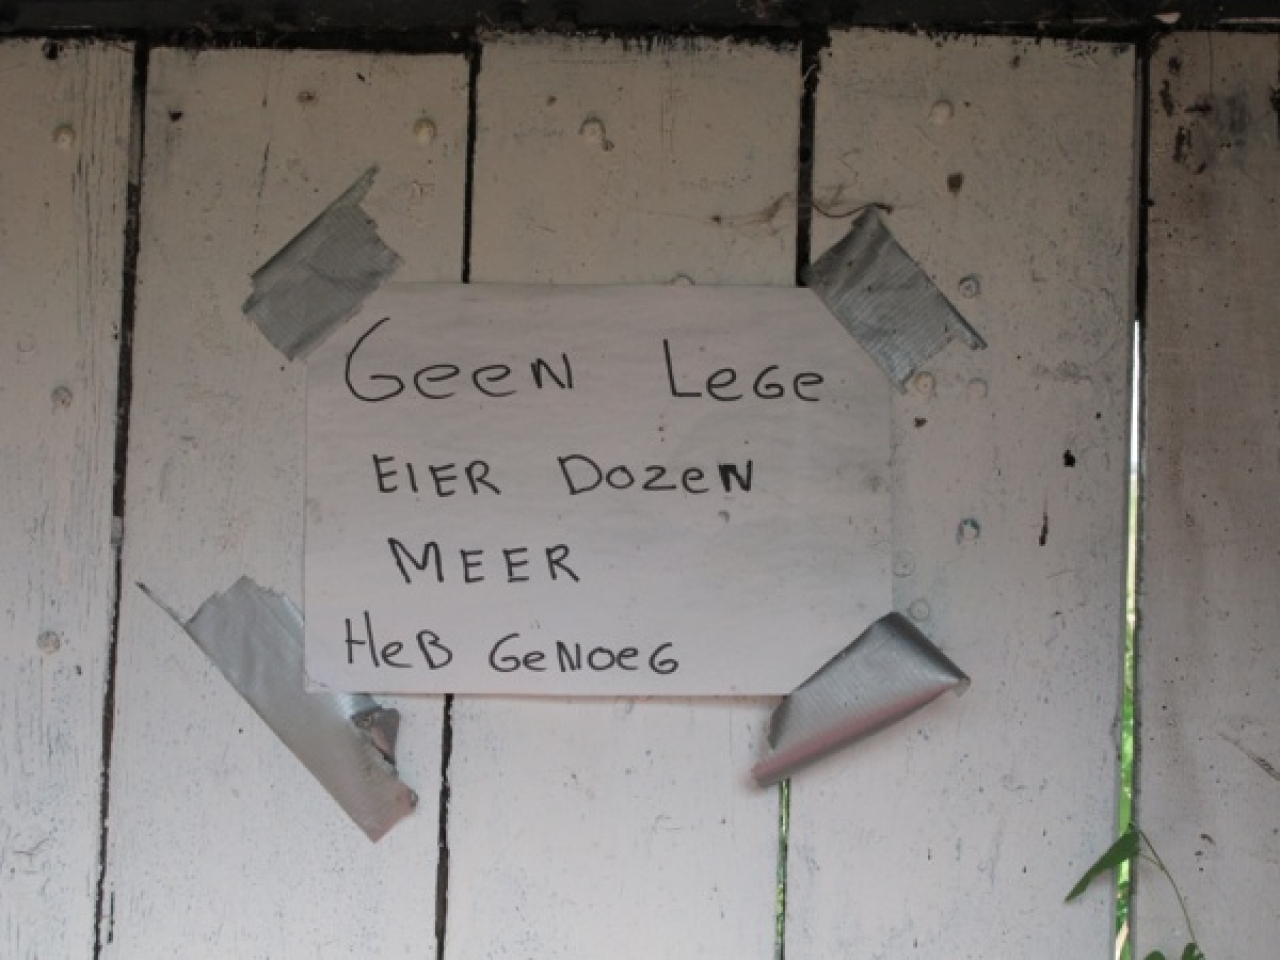 Geen Lege
EIER Dozen
MEER
HeB GeNoeG